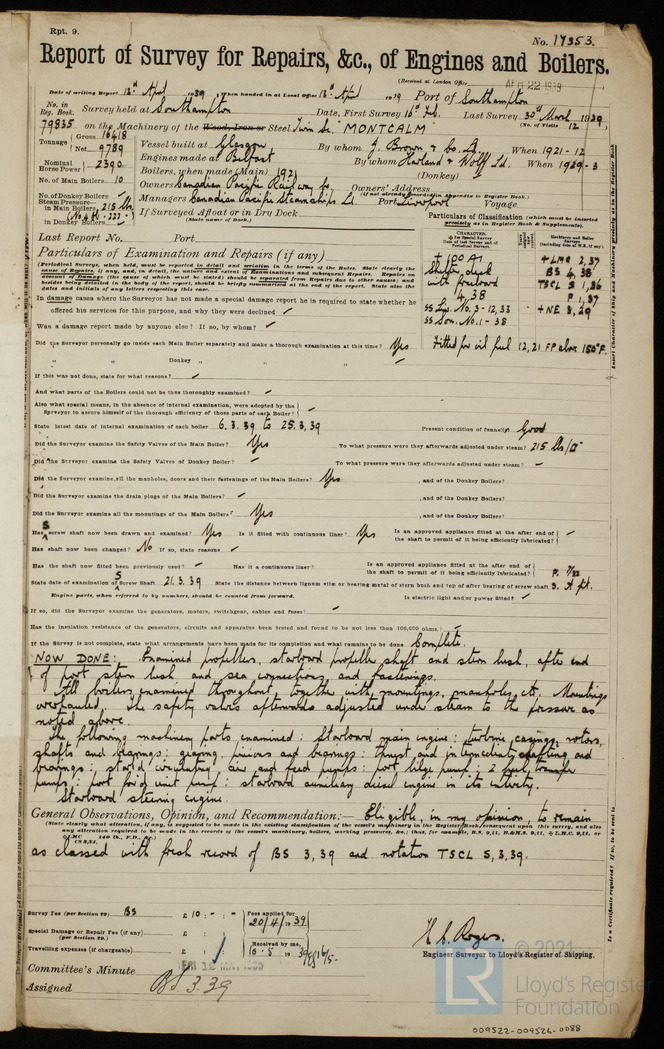 Rpt. 9.
No. 17353.
Report of Survey for Repairs, &c., of Engines and Boilers.
(Received at London Office APR 22 1939
Date of writing Report 12th April 1939 When handed in at Local Office 18th April 1939 Port of Southampton
No. in Reg. Book. Survey held at Southampton Date, First Survey 16th Feb. Last Survey 30th March 1939
79835 on the Machinery of the Wood, Iron or Steel Twin Sc. "MONTCALM" (No. of Visits 12)
Tonnage Gross 16418 Vessel built at Glasgow By whom J. Brown & Co. Ld. When 1921-12
Net 9789 Engines made at Belfast By whom Harland & Wolff Ld. When 1929-3
Nominal Horse Power 2390 Boilers, when made (Main) 1921 (Donkey)
No. of Main Boilers 10 Owners Canadian Pacific Railway Co. Owners' Address
(if not already recorded in Appendix to Register Book.)
No. of Donkey Boilers Managers Canadian Pacific Steamships Ld. Port Liverpool Voyage
Steam Pressure in Main Boilers 215 lbs If Surveyed Afloat or in Dry Dock
in Donkey Boilers (State name of Dock.)
Particulars of Classification (which must be inserted precisely as in Register Book & Supplements).
Last Report No. Port
Particulars of Examination and Repairs (if any)
+ 100 A1 + LMC 2,37
Shelter deck BS 4,38
with freeboard TSCL S 1,36
4,38 P 1,37
SS Lip. No. 3 - 12,33 + NE 3,29
SS Son. No. 1 - 38
Fitted for oil fuel 12,21 FP above 150°F.
In damage cases where the Surveyor has not made a special damage report he is required to state whether he
offered his services for this purpose, and why they were declined
Was a damage report made by anyone else? If so, by whom?
Did the Surveyor personally go inside each Main Boiler separately and make a thorough examination at this time? Yes
" " Donkey " "
If this was not done, state for what reasons?
And what parts of the Boilers could not be thus thoroughly examined?
Also what special means, in the absence of internal examination, were adopted by the
Surveyor to assure himself of the thorough efficiency of those parts of each Boiler?
State latest date of internal examination of each boiler 6.3.39 to 25.3.39 Present condition of funnel(s) Good
Did the Surveyor examine the Safety Valves of the Main Boiler? Yes To what pressure were they afterwards adjusted under steam? 215 lbs/□"
Did the Surveyor examine the Safety Valves of Donkey Boiler? To what pressure were they afterwards adjusted under steam?
Did the Surveyor examine all the manholes, doors and their fastenings of the Main Boilers? Yes , and of the Donkey Boilers?
Did the Surveyor examine the drain plugs of the Main Boilers? , and of the Donkey Boilers?
Did the Surveyor examine all the mountings of the Main Boilers? Yes , and of the Donkey Boilers?
Has S screw shaft now been drawn and examined? Yes Is it fitted with continuous liner? Yes Is an approved appliance fitted at the after end of
the shaft to permit of it being efficiently lubricated?
Has shaft now been changed? No If so, state reasons
Has the shaft now fitted been previously used? Has it a continuous liner? Is an approved appliance fitted at the after end of
the shaft to permit of it being efficiently lubricated?
State date of examination of S Screw Shaft 21.3.39 State the distance between lignum vitæ or bearing metal of stern bush and top of after bearing of screw shaft
Engine parts, when referred to by numbers, should be counted from forward. Is electric light and/or power fitted?
If so, did the Surveyor examine the generators, motors, switchgear, cables and fuses?
Has the insulation resistance of the generators, circuits and apparatus been tested and found to be not less than 100,000 ohms?
If the Survey is not complete, state what arrangements have been made for its completion and what remains to be done Complete.
NOW DONE: Examined propellers, starboard propeller shaft and stern bush, after end
of port stern bush and sea connections and fastenings.
All boilers examined throughout, together with mountings, manholes etc. Mountings
overhauled. The safety valves afterwards adjusted under steam to the pressure as
noted above.
The following machinery parts examined: Starboard main engine: turbine casings, rotors,
shafts and bearings: gearing, pinions and bearings: thrust and intermediate shafting and
bearings: starbd circulating, air and feed pumps: port bilge pump: 2 fuel transfer
pumps: port ford unit pump: starboard auxiliary diesel engine in its entirety.
Starboard steering engine.
General Observations, Opinion, and Recommendation:— Eligible, in my opinion, to remain
(State clearly what alteration, if any, is suggested to be made in the existing classification of the vessel's machinery in the Register Book consequent upon this survey, and also
any alteration required to be made in the records of the vessel's machinery, boilers, working pressures, &c.;
as classed with fresh record of BS 3,39 and notation TSCL S,3,39.
Survey Fee (per Section 29) BS £ 10 : - : - Fees applied for 20/4/1939
Special Damage or Repair Fee (if any) (per Section 29.) £ : :
Travelling expenses (if chargeable) £ : : Received by me, 16.5.1939
H. S. Roger.
Engineer Surveyor to Lloyd's Register of Shipping.
Committee's Minute FRI 12 MAY 1939
Assigned BS 3.39
© 2021
LR
Lloyd's Register
Foundation
009522-009526-0088